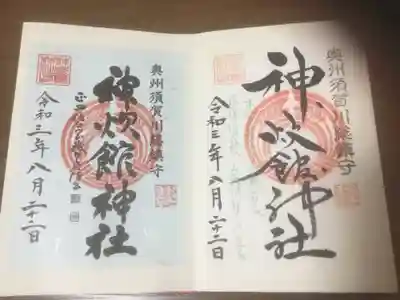 奥州須賀川総鎮守
神炊館神社
令和三年八月二十二日
奥州須賀川総鎮守
神炊館神社
令和三年八月二十二日